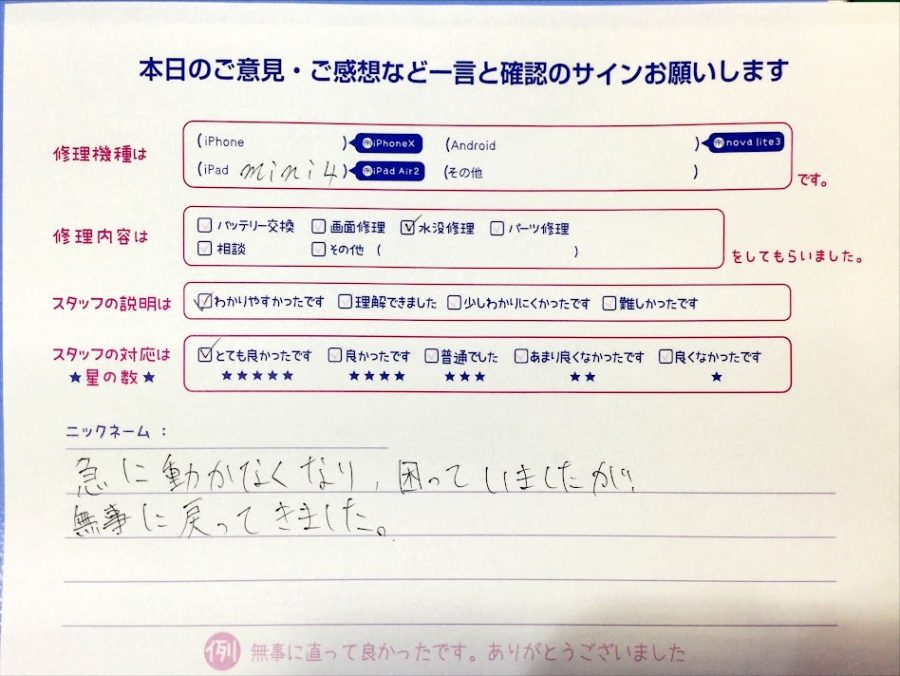 本日のご意見・ご感想など一言と確認のサインお願いします
修理機種は (iPhone ) 例iPhoneX (Android ) 例nova lite3
(iPad mini4) 例iPad Air2 (その他 ) です。
修理内容は □バッテリー交換 □画面修理 ☑水没修理 □パーツ修理
□相談 □その他 ( ) をしてもらいました。
スタッフの説明は ☑わかりやすかったです □理解できました □少しわかりにくかったです □難しかったです
スタッフの対応は ☑とても良かったです □良かったです □普通でした □あまり良くなかったです □良くなかったです
★星の数★ ★★★★★ ★★★★ ★★★ ★★ ★
ニックネーム：
急に動かなくなり、困っていましたが、
無事に戻ってきました。
例 無事に直って良かったです。ありがとうございました